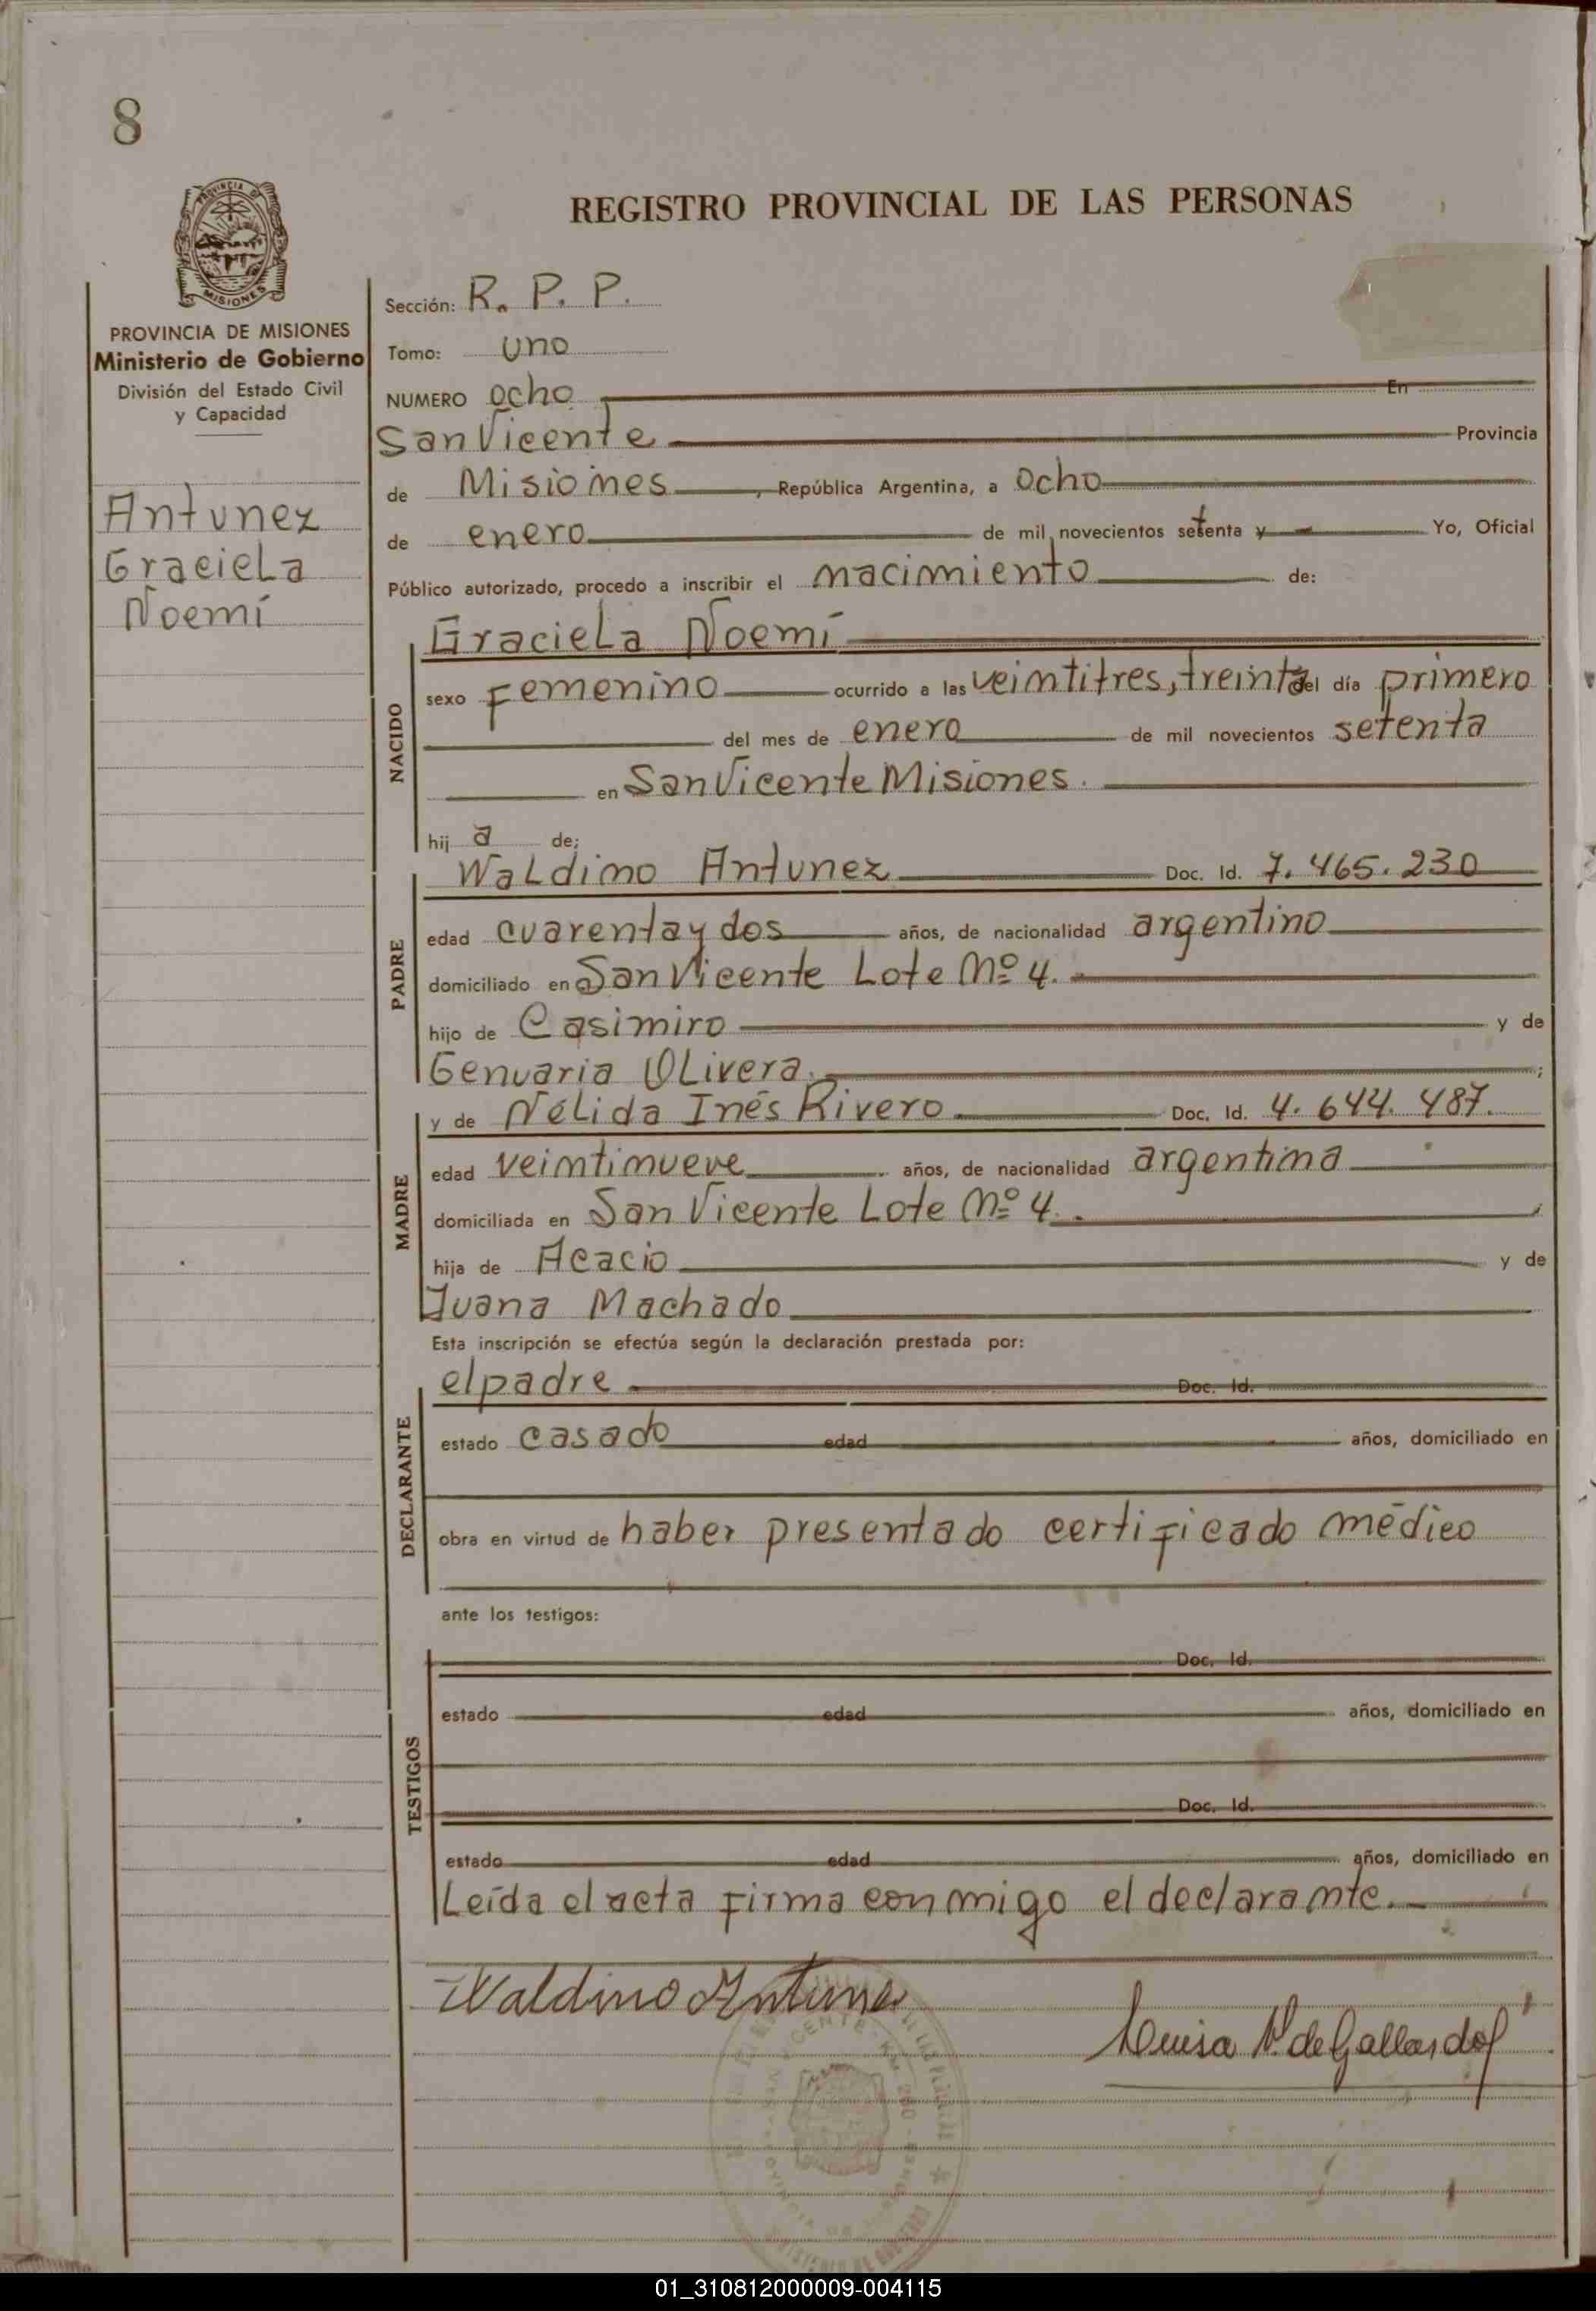 8
PROVINCIA DE MISIONES
REGISTRO PROVINCIAL DE LAS PERSONAS
PROVINCIA DE MISIONES
Ministerio de Gobierno
División del Estado Civil
y Capacidad
Antunez
Graciela
Noemí
Sección: R. P. P.
Tomo: uno
NUMERO ocho En
San Vicente Provincia
de Misiones, República Argentina, a ocho
de enero de mil novecientos setenta y Yo, Oficial
Público autorizado, procedo a inscribir el nacimiento de:
NACIDO
Graciela Noemí
sexo Femenino ocurrido a las veintitres, treinta del día primero
del mes de enero de mil novecientos setenta
en San Vicente Misiones.
hija de;
PADRE
Waldino Antunez Doc. Id. 7.465.230
edad cuarenta y dos años, de nacionalidad argentino
domiciliado en San Vicente Lote Nº 4.
hijo de Casimiro y de
Genuaria Olivera.;
MADRE
y de Nélida Inés Rivero Doc. Id. 4.644.487.
edad veintinueve años, de nacionalidad argentina
domiciliada en San Vicente Lote Nº 4.
hija de Acacio y de
Juana Machado
Esta inscripción se efectúa según la declaración prestada por:
DECLARANTE
el padre Doc. Id.
estado casado edad años, domiciliado en
obra en virtud de haber presentado certificado médico
ante los testigos:
TESTIGOS
Doc. Id.
estado edad años, domiciliado en
Doc. Id.
estado edad años, domiciliado en
Leída el acta firma conmigo el declarante.
Waldino Antunez
Luisa de Gallardo
01_310812000009-004115